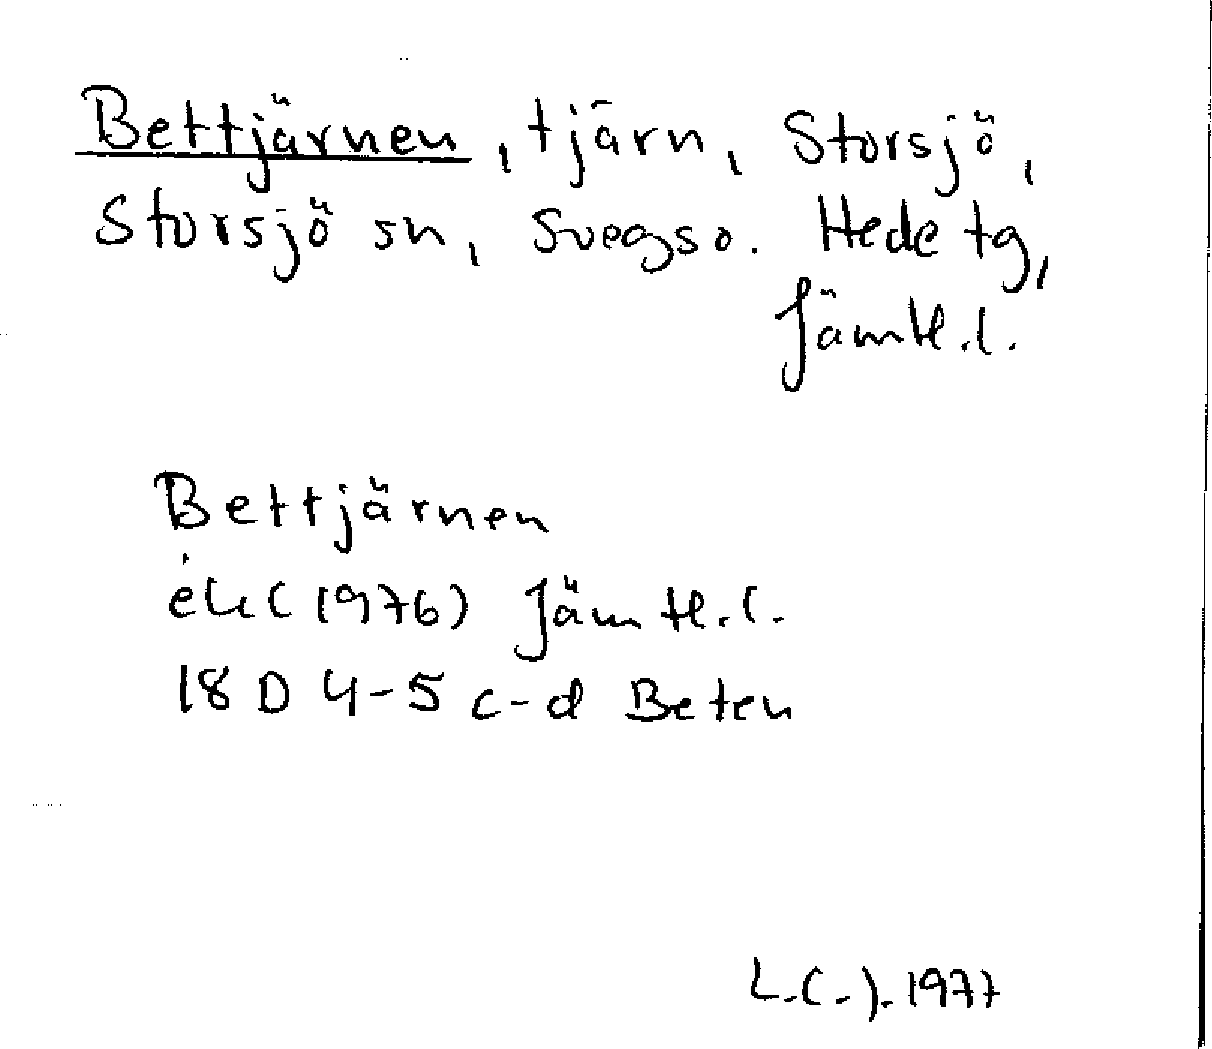 Bettjärnen, tjärn, Storsjö,
Storsjö sn, Svegs o. Hede tg,
Jämtl. l.
Bettjärnen
ek (1976) Jämtl. l.
18 D 4-5 c-d Beten
L.C.J. 1977